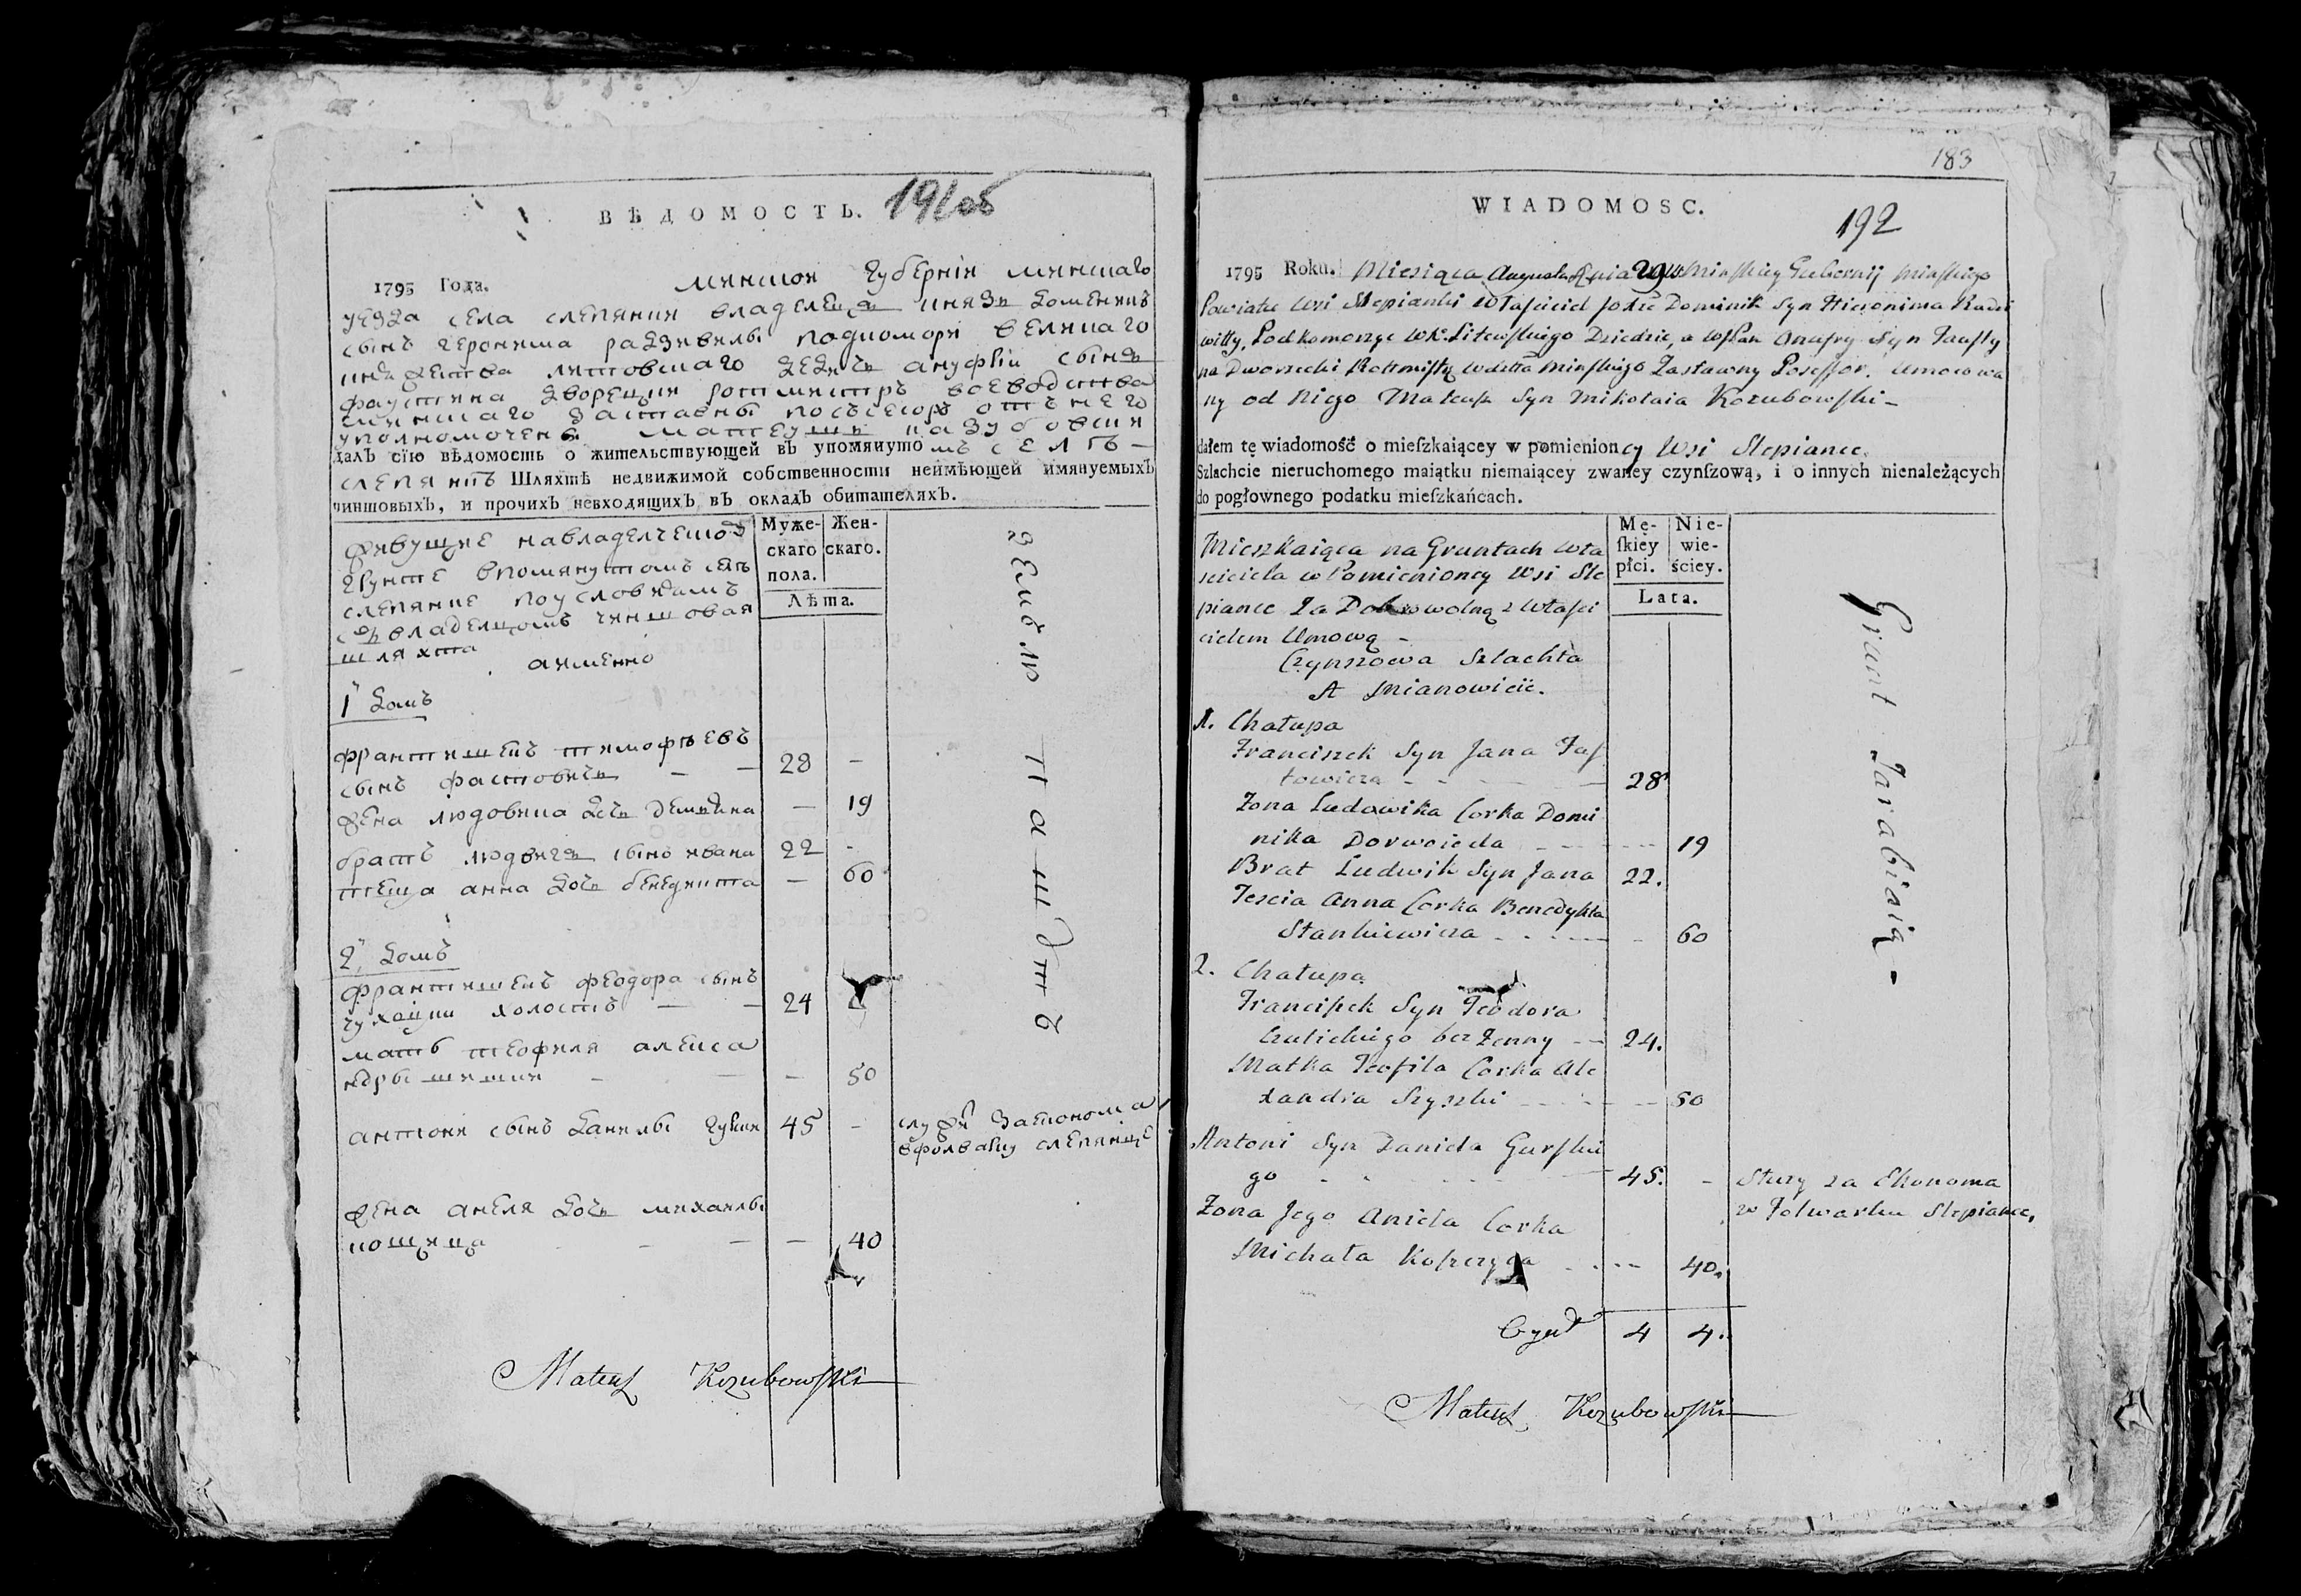 ВѢДОМОСТЬ. 192об
1795 Года. минской губерніи минскаго
уезда села слепянки владелеца князь доменикъ
сынъ геронима радзивилы подкомори великаго
княжества литовскаго дедичъ ануфрій сынъ
фаустина дворецки ротмистръ воеводства
минскаго заставны посесоръ отъ него
уполномоченъ матеушъ казубовски
далъ сїю вѣдомость о жительствующей въ упомянутомъ селѣ
слепянкѣ Шляхтѣ недвижимой собственности неимѣющей имянуемыхъ
чиншовыхъ, и прочихъ невходящихъ въ окладъ обитателяхъ.
Муже- Жен-
скаго скаго.
пола.
Лѣта.
живущие навладелческой
грунте впомянутомъ селѣ
слепянке поусловиамъ
съ владелцомъ чиншовая
шляхта
аименно
1 домъ
франтишекъ тимофѣевъ
сынъ фастовичъ — — 28 —
жена людовика дочь — 19
братъ людвигъ сынъ ивана 22 -
теща анна дочь бенедикта — 60
2 домъ
франтишекъ феодора сынъ
холостъ — — 24
мать теофиля алекса
ндры шишки — — — 50
антони сынъ данилы 45 -
служи заэконома
вфолварку слепянце
жена анеля дочь михаилы
— — — 40
землю пашутъ
Mateusz Kozubowski
183
WIADOMOSC.
192
1795 Roku. Miesiąca Augusta Dnia 29 w Minskiey Gubernij Minskiego
Powiatu Wsi Slepianki Właściciel Xiże Dominik Syn Hieronima Radzi
wiłły, Podkomorzyc W.X. Litewskiego Dziedzic, a WJPan Onufry Syn Fausty
na Dworzecki Rottmistrz Wdztta Minskiego Zastawny Possessor. Umocowa
ny od Niego Mateusz Syn Mikołaia Kozubowski –
dałem tę wiadomość o mieſzkaiącey w pomienioney Wsi Slepiance.
Szlachcie nieruchomego maiątku niemaiącey zwaney czynſzową, i o innych nienależących
do pogłownego podatku mieſzkańcach.
Mę- Nie-
ſkiey wie-
płci. ściey.
Lata.
Mieszkaiąca na Gruntach Wła
sciciela w Pomienioney Wsi Sle
piance Za Dobrowolną z Właści
cielem Umową –
Czynszowa Szlachta
A Mianowicie.
1. Chałupa
Franciszek Syn Jana Fas
towicza - - - 28
Zona Ludowika Corka Domi
nika Dorwoieda - - - 19
Brat Ludwik Syn Jana 22.
Tescia Anna Corka Benedykta
Stankiewicza - - - - 60
2. Chałupa
Franciszek Syn Teodora
Czulickiego bez Zenny - - 24.
Matka Teofila Corka Ale
xandra Szyszki - - - 50
Antoni Syn Daniela Gurskie
go - - - 45. -
Służy za Ekonoma
w Folwarku Slepiance,
Zona Jego Aniela Corka
Michała Koszczyca - - - 40.
Oguł 4 4.
Grunt Zarabiaią -
Mateusz Kozubowski